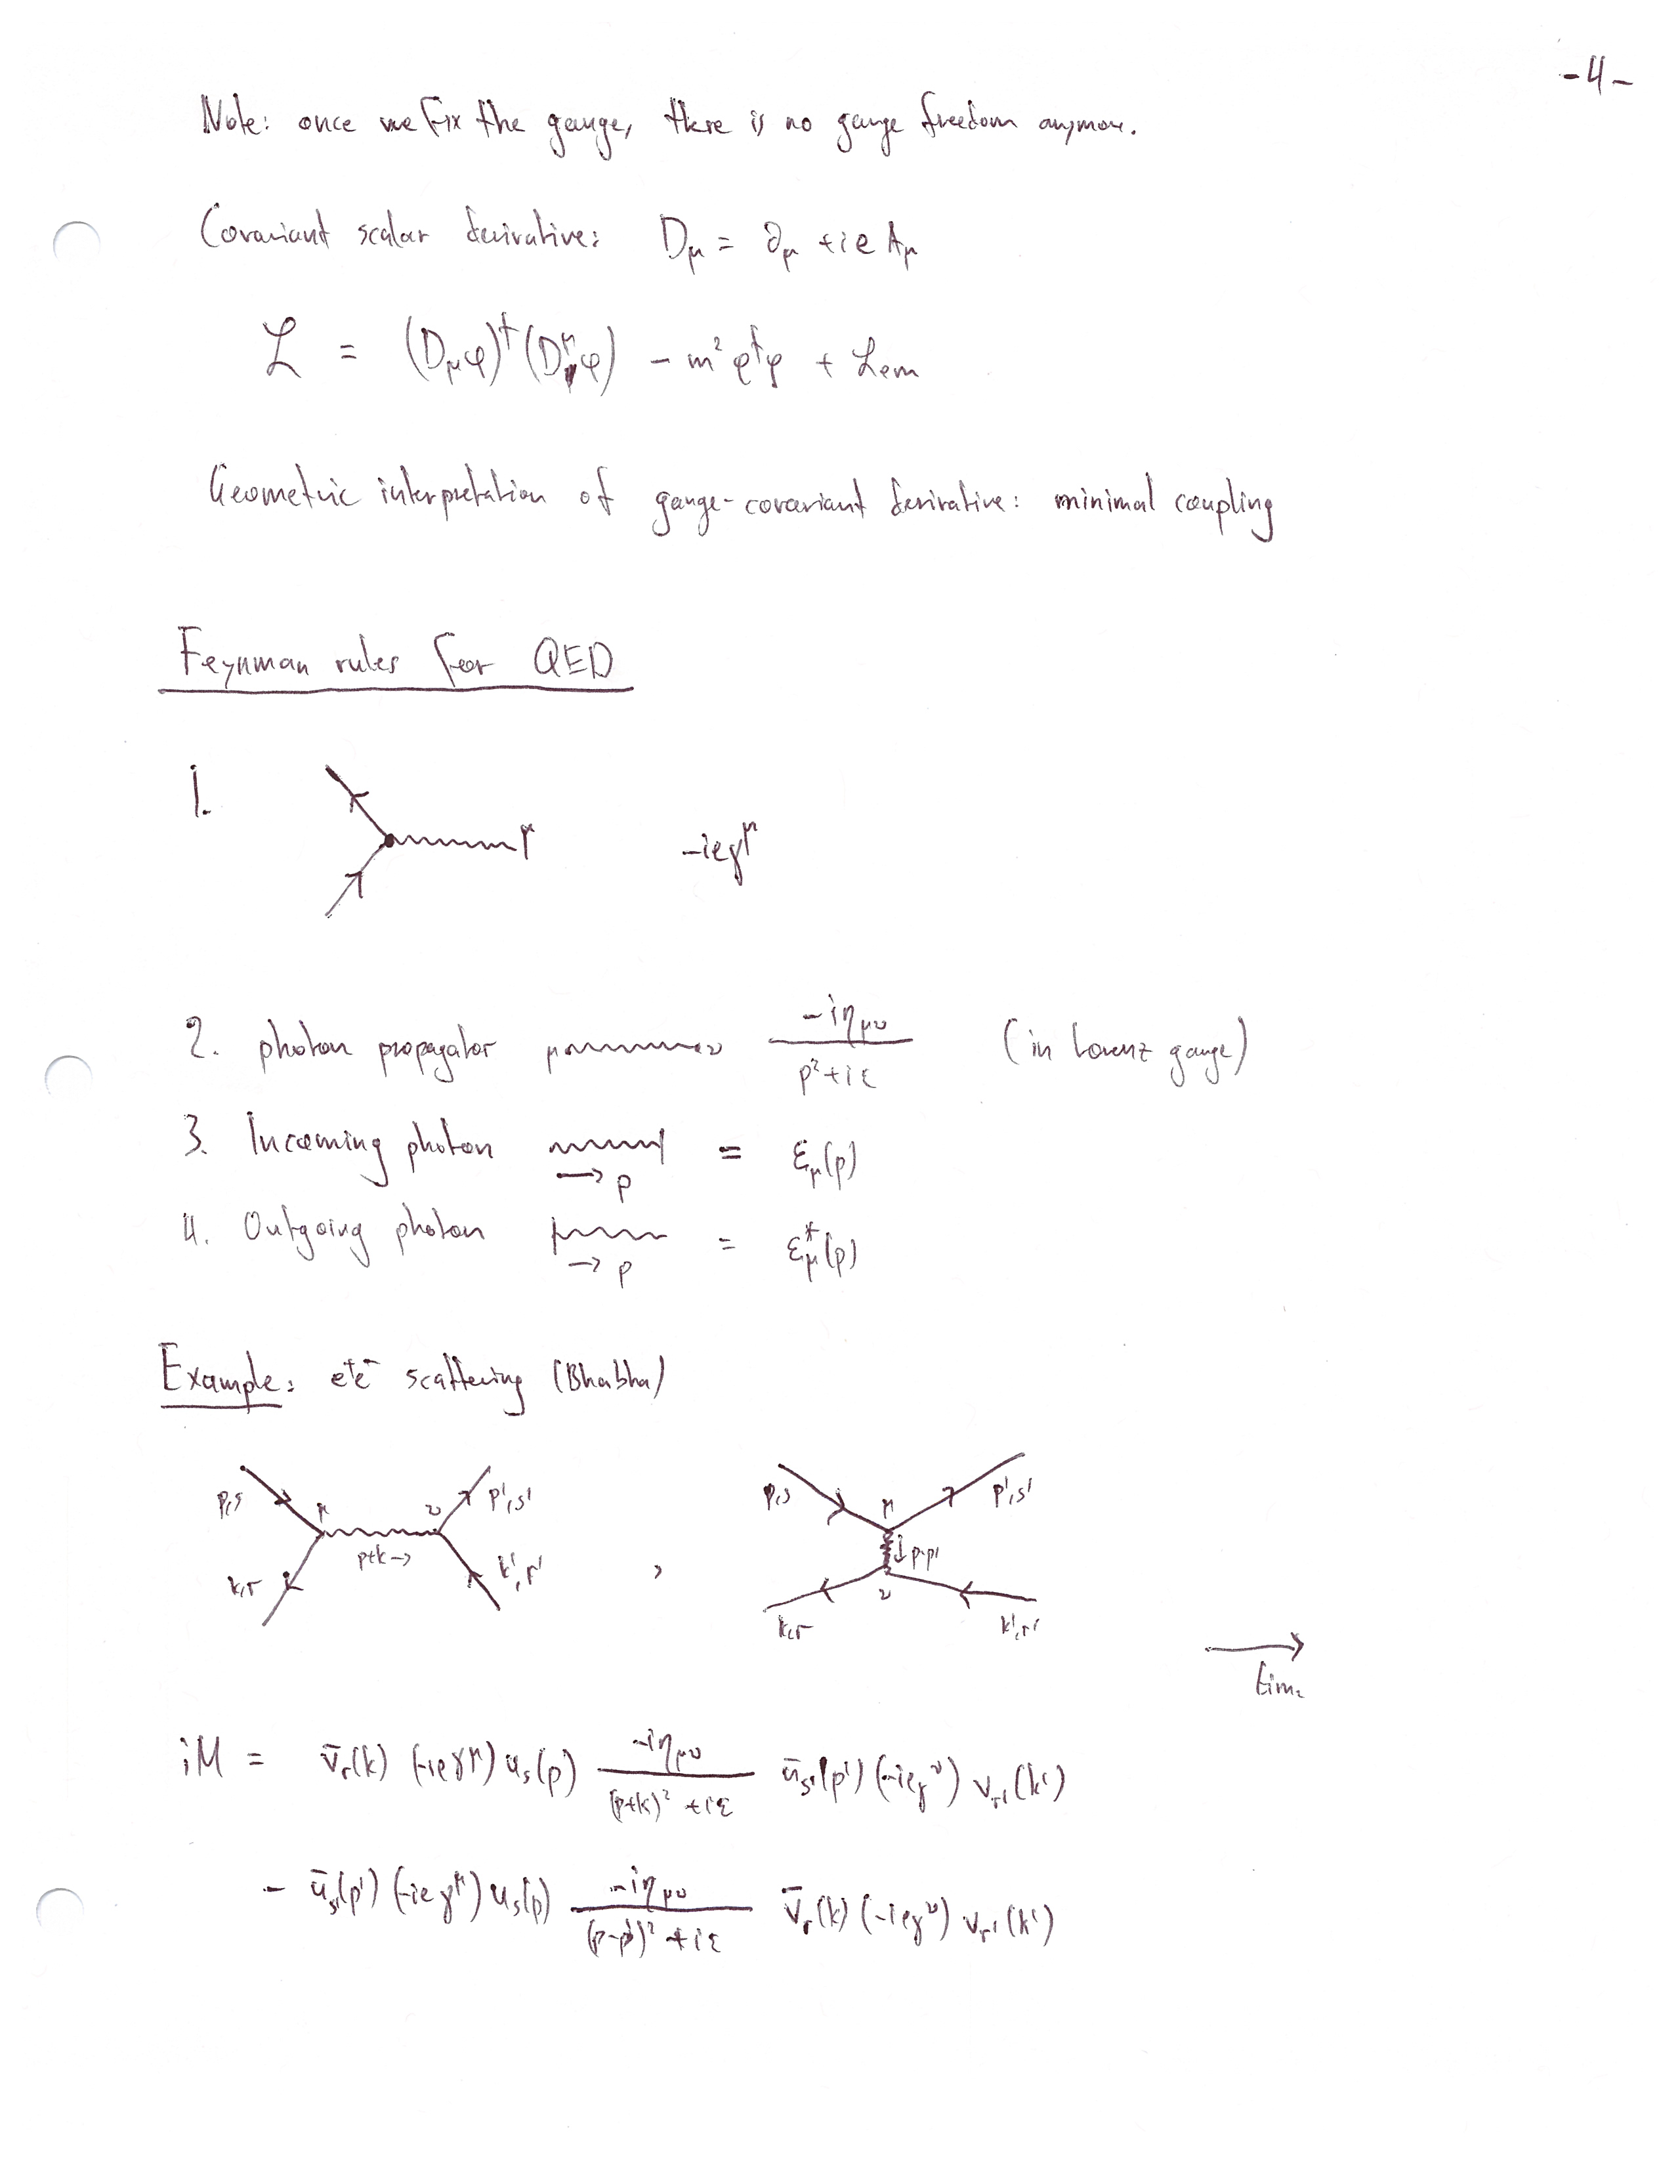 -4-
Note: once we fix the gauge, there is no gauge freedom anymore.
Covariant scalar derivative: D_μ = ∂_μ + ie A_μ
ℒ = (D_μ φ)^† (D^μ φ) - m² φ^† φ + ℒ_em
Geometric interpretation of gauge-covariant derivative: minimal coupling
Feynman rules for QED
1. μ -ieγ^μ
2. photon propagator μ ν -iη_μν / p² + iε (in Lorenz gauge)
3. Incoming photon → p = ε_μ(p)
4. Outgoing photon → p = ε*_μ(p)
Example: e⁺e⁻ scattering (Bhabha)
p,s μ ν p',s' , p,s μ p',s'
p+k → ↓ p-p'
k,r k',r' k,r ν k',r'
→
time
iM = v̄_r(k) (-ieγ^μ) u_s(p) -iη_μν / (p+k)² + iε ū_s'(p') (-ieγ^ν) v_r'(k')
- ū_s'(p') (-ieγ^μ) u_s(p) -iη_μν / (p-p')² + iε v̄_r(k) (-ieγ^ν) v_r'(k')